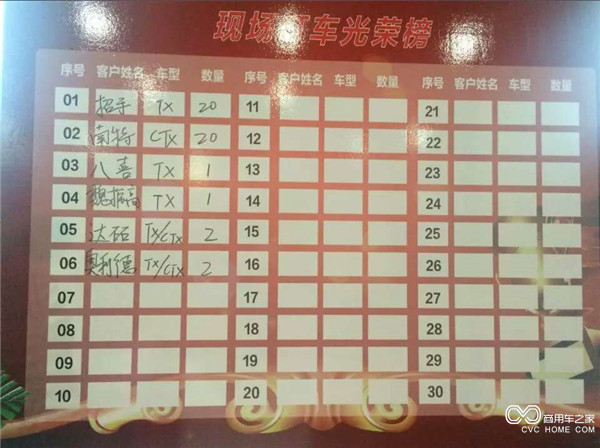 现场订车光荣榜
序号 客户姓名 车型 数量 11 客户姓名 车型 数量 序号 客户姓名 车型 数量
01 招手 TX 20 11 21
02 南特 CTX 20 12 22
03 八喜 TX 1 13 23
04 魏振高 TX 1 14 24
05 达石 TX/CTX 2 15 25
06 奥利德 TX/CTX 2 16 26
07 17 27
08 18 28
09 19 29
10 20 30
商用车之家
CVC HOME COM